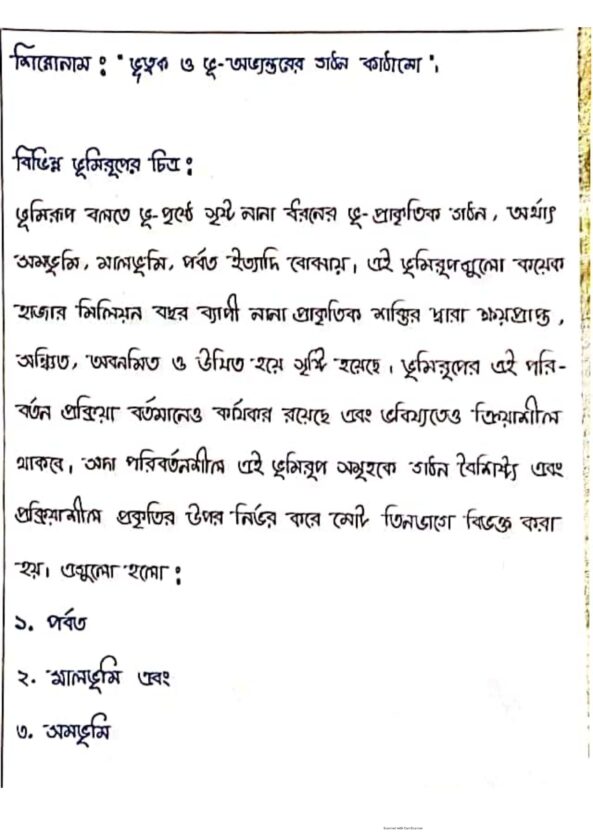 শিরোনাম : "ভূত্বক ও ভূ-অভ্যন্তরের গঠন কাঠামো".
বিভিন্ন ভূমিরূপের চিত্র :
ভূমিরূপ বলতে ভূ-পৃষ্ঠে সৃষ্ট নানা ধরনের ভূ-প্রাকৃতিক গঠন, অর্থাৎ
সমভূমি, মালভূমি, পর্বত ইত্যাদি বোঝায়। এই ভূমিরূপগুলো কয়েক
হাজার মিলিয়ন বছর ব্যাপী নানা প্রাকৃতিক শক্তির দ্বারা ক্ষয়প্রাপ্ত,
সঞ্চিত, অবনমিত ও উত্থিত হয়ে সৃষ্টি হয়েছে। ভূমিরূপের এই পরি-
বর্তন প্রক্রিয়া বর্তমানেও কার্যকার রয়েছে এবং ভবিষ্যতেও ক্রিয়াশীল
থাকবে। সদা পরিবর্তনশীল এই ভূমিরূপ সমূহকে গঠন বৈশিষ্ট্য এবং
প্রক্রিয়াশীল প্রকৃতির উপর নির্ভর করে মোট তিনভাগে বিভক্ত করা
হয়। এগুলো হলো :
১. পর্বত
২. মালভূমি এবং
৩. সমভূমি